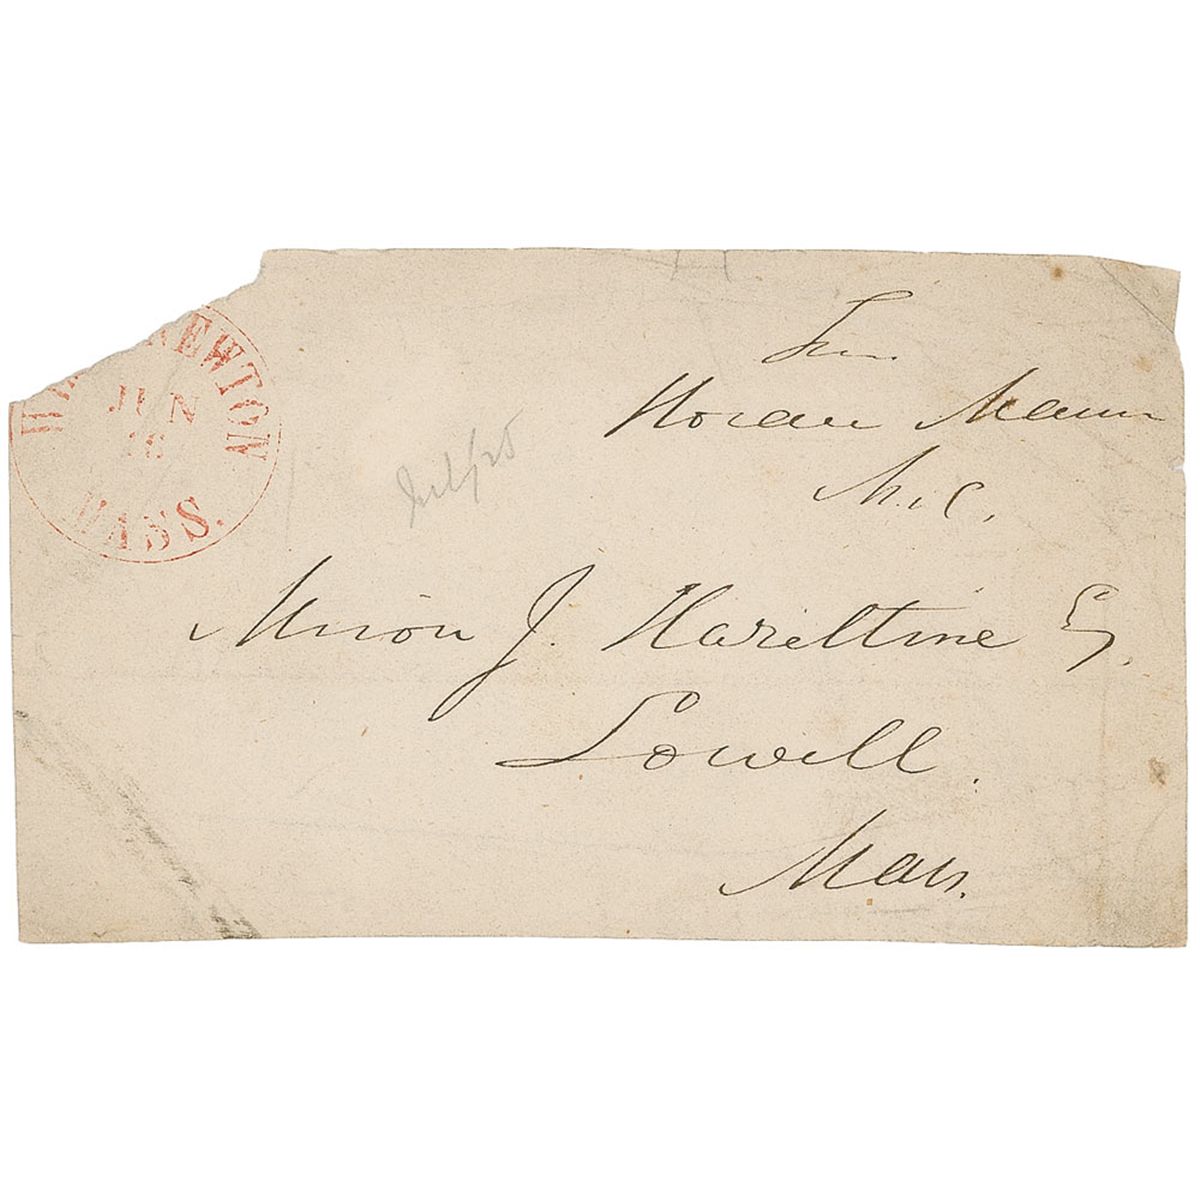 NEWTON
JUN
MASS.
Free
Horace Mann
M.C.
Miron J. Hazeltine Esq.
Lowell.
Mass.